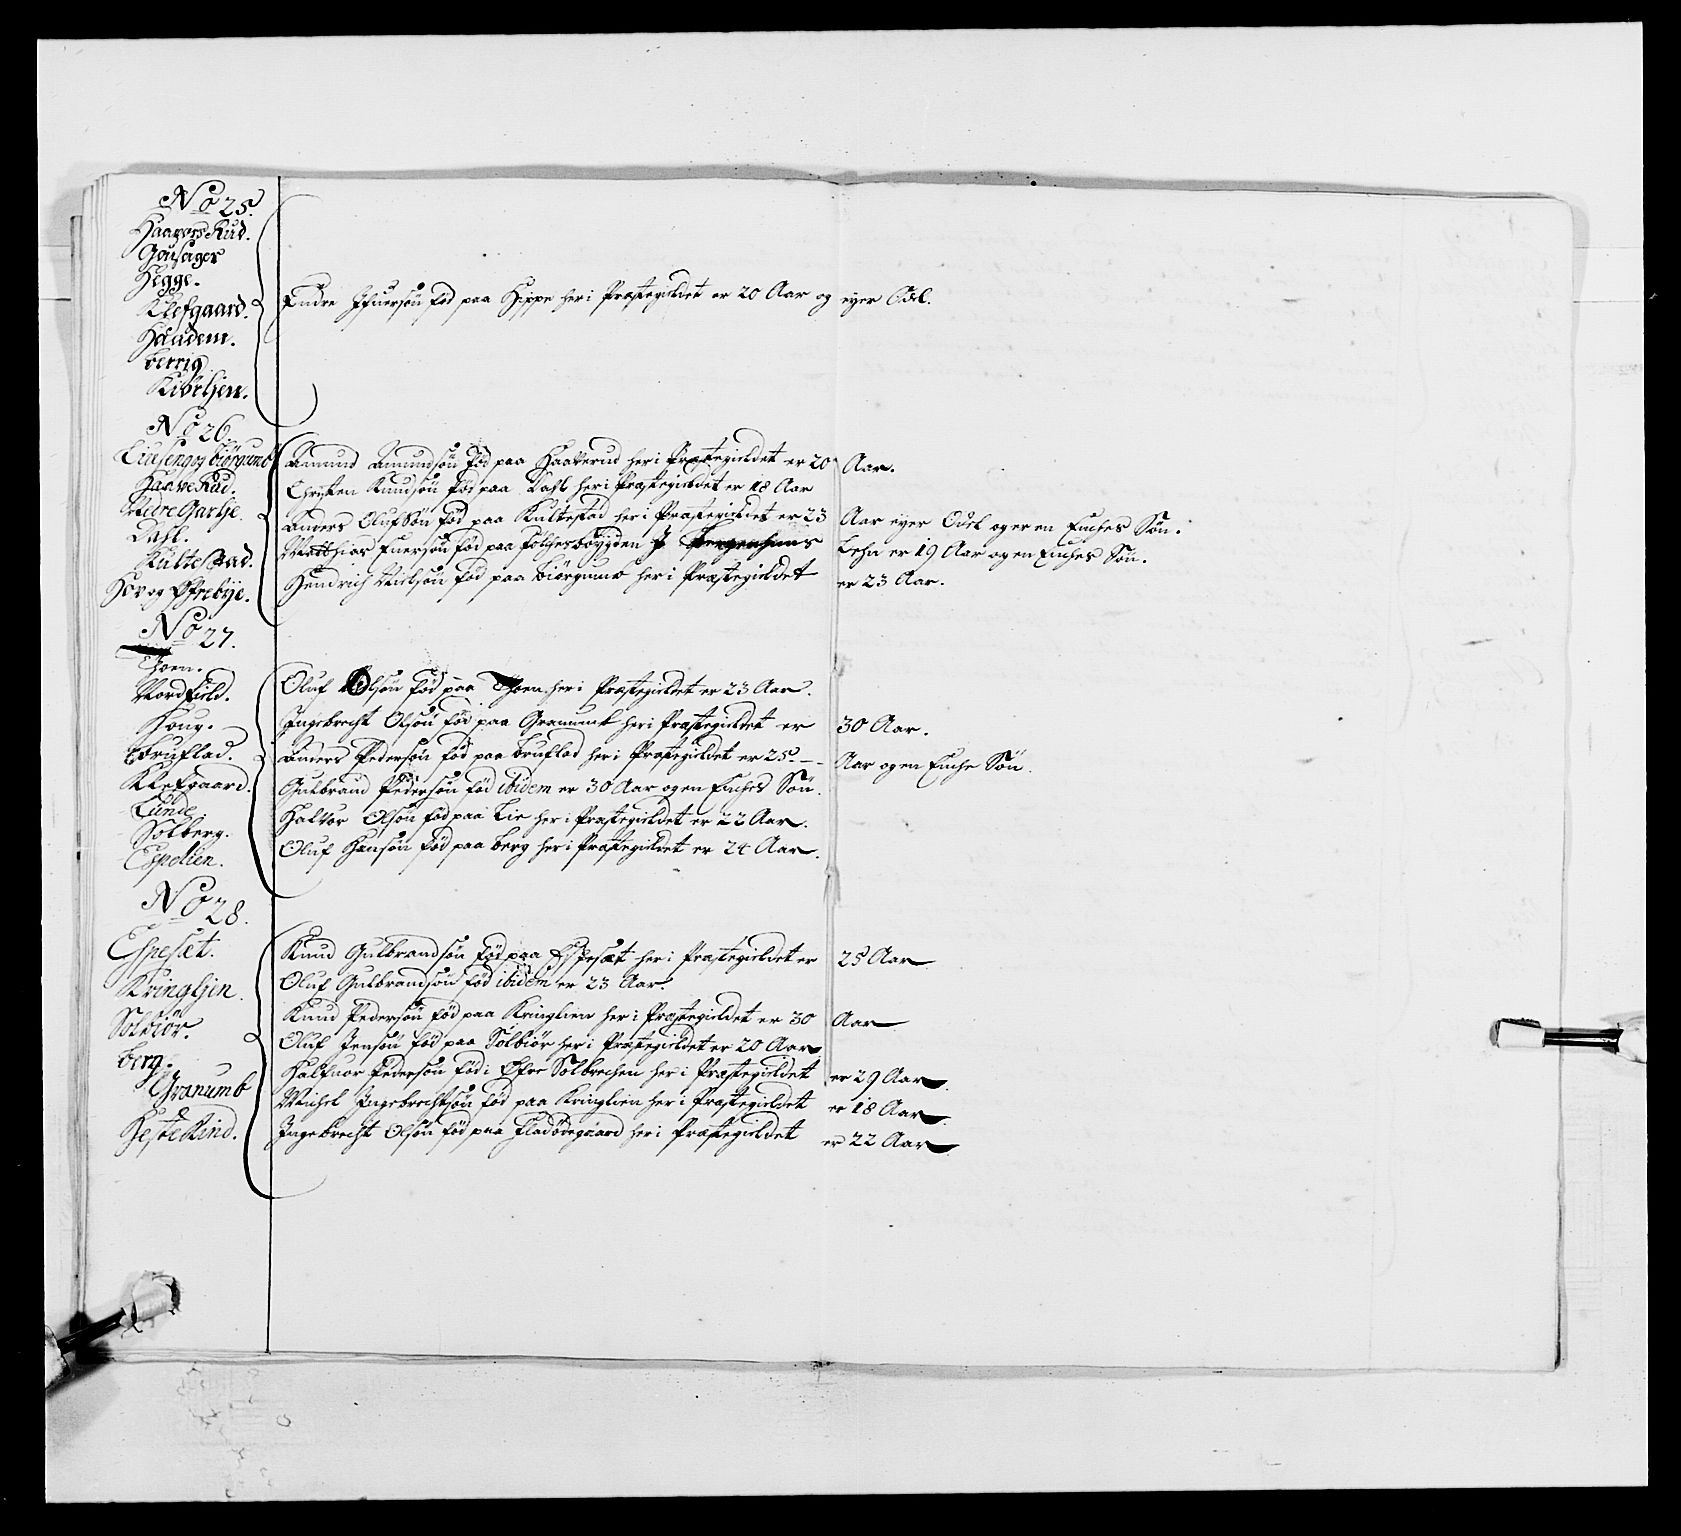 No 25.
Haavers Rud.
Gousager
Hegge.
Klefgaard.
Haudem.
berrig
Kibrljen.
Endre Ifuersøn fød paa Hippe her i Præstegieldet er 20 Aar og eyer Odel.
No 26.
Liuseng og biørgumb
Haave Rud.
Nedre Garthe.
Dahl.
Kulte Stad.
Hov og Østrebÿe.
Amund Amundsøn fød paa Haaverud her i Præstegieldet er 20 Aar.
Christen Knudsøn fød paa Dahl her i Præstegieldet er 18 Aar
Anders Olufsøn fød paa Kultestad her i Præstegieldet er 23 Aar eyer Odel og er en Enches Søn.
Matthias Enersøn fød paa bøygden I Lehn er 19 Aar og en Enches Søn.
Hendrich Nielsøn fød paa biørgumb her i Præstegieldet er 23 Aar.
No 27.
Thoen.
Nordfield.
Houg.
Bruflad.
Klefgaard.
Lunde
Solberg.
Espelien.
Oluf Olsøn fød paa Thoen her i Præstegieldet er 23 Aar.
Ingebrecht Olsøn fød paa Granumb her i Præstegieldet er 30 Aar.
Anders Pedersøn fød paa bruflad her i Præstegieldet er 25 Aar og en Enche Søn.
Gulbrand Pedersøn fød ibidem er 30 Aar og en Enches Søn.
Halvor Olsøn fød paa Lie her i Præstegieldet er 22 Aar.
Oluf Hansøn fød paa berg her i Præstegieldet er 24 Aar.
No 28.
Espeset.
Kringljen.
Solbiør.
berg.
Granumb
Heste Kind.
Knud Gulbrandsøn fød paa Espesæt her i Præstegieldet er 25 Aar
Oluf Gulbrandsøn fød ibidem er 23 Aar.
Knud Pedersøn fød paa Kringlien her i Præstegieldet er 30 Aar
Oluf Jensøn fød paa Solbiør her i Præstegieldet er 20 Aar
Halfuor Pedersøn fød i Øfre Solbrechen her i Præstegieldet er 29 Aar.
Michel Ingebrechtsøn fød paa Kringlien her i Præstegieldet er 18 Aar
Ingebrecht Olsøn fød paa Fladødegaard her i Præstegieldet er 22 Aar